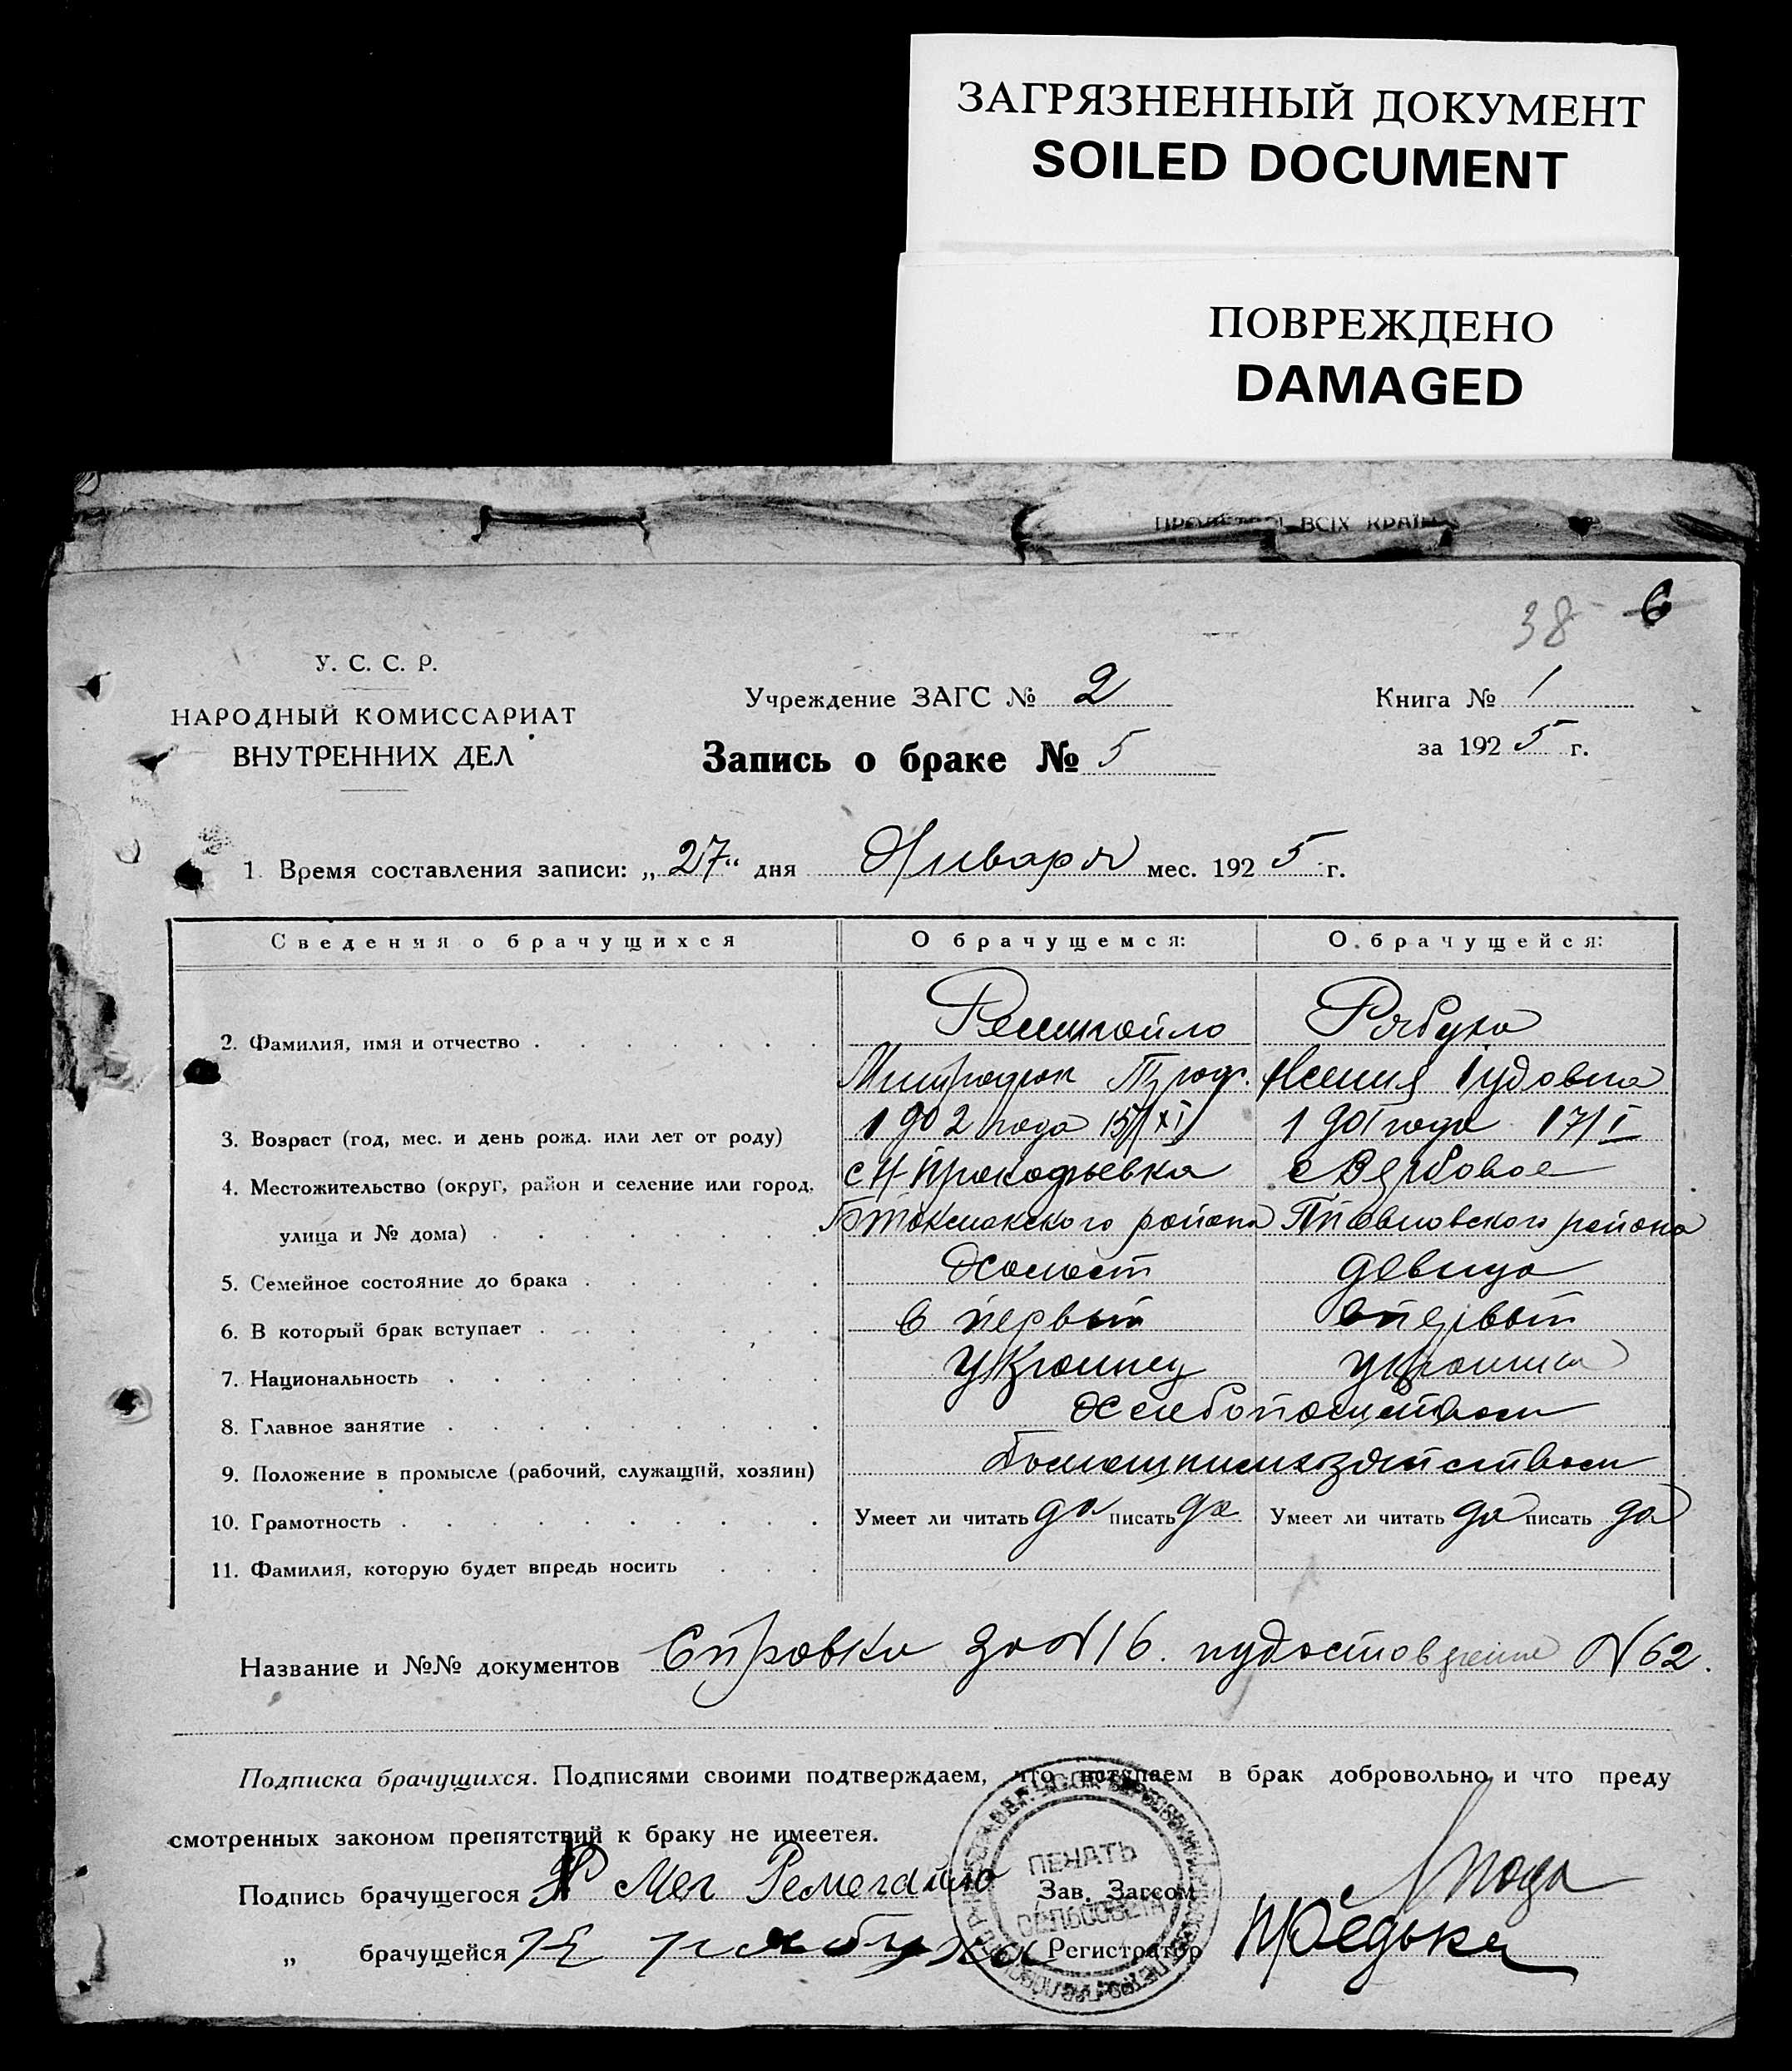 ЗАГРЯЗНЕННЫЙ ДОКУМЕНТ
SOILED DOCUMENT
ПОВРЕЖДЕНО
DAMAGED
ВСІХ КРАЇН
38 6
У. С. С. Р.
НАРОДНЫЙ КОМИССАРИАТ
ВНУТРЕННИХ ДЕЛ
Учреждение ЗАГС № 2
Книга № 1
за 1925 г.
Запись о браке № 5
1. Время составления записи: „27“ дня Января мес. 1925 г.
Сведения о брачущихся О брачущемся: О брачущейся:
2. Фамилия, имя и отчество Рябуха
3. Возраст (год, мес. и день рожд. или лет от роду) 1902 года 15/XI 1901 года 17/I
4. Местожительство (округ, район и селение или город, с Н Прокофьевка с Вербовое
улица и № дома) БТокмакского района Павловского района
5. Семейное состояние до брака Холост девица
6. В который брак вступает в первый в первый
7. Национальность Украинец украинка
8. Главное занятие Хлебопашеством
9. Положение в промысле (рабочий, служащий, хозяин)
10. Грамотность Умеет ли читать да писать да Умеет ли читать да писать да
11. Фамилия, которую будет впредь носить
Название и №№ документов Справка за N 16. N 62.
Подписка брачущихся. Подписями своими подтверждаем, что вступаем в брак добровольно и что преду
смотренных законом препятствий к браку не имеется.
Подпись брачущегося Зав. Загсом
„ брачущейся рябуха Регистратор
ПЕЧАТЬ
СЕЛЬСОВЕТА